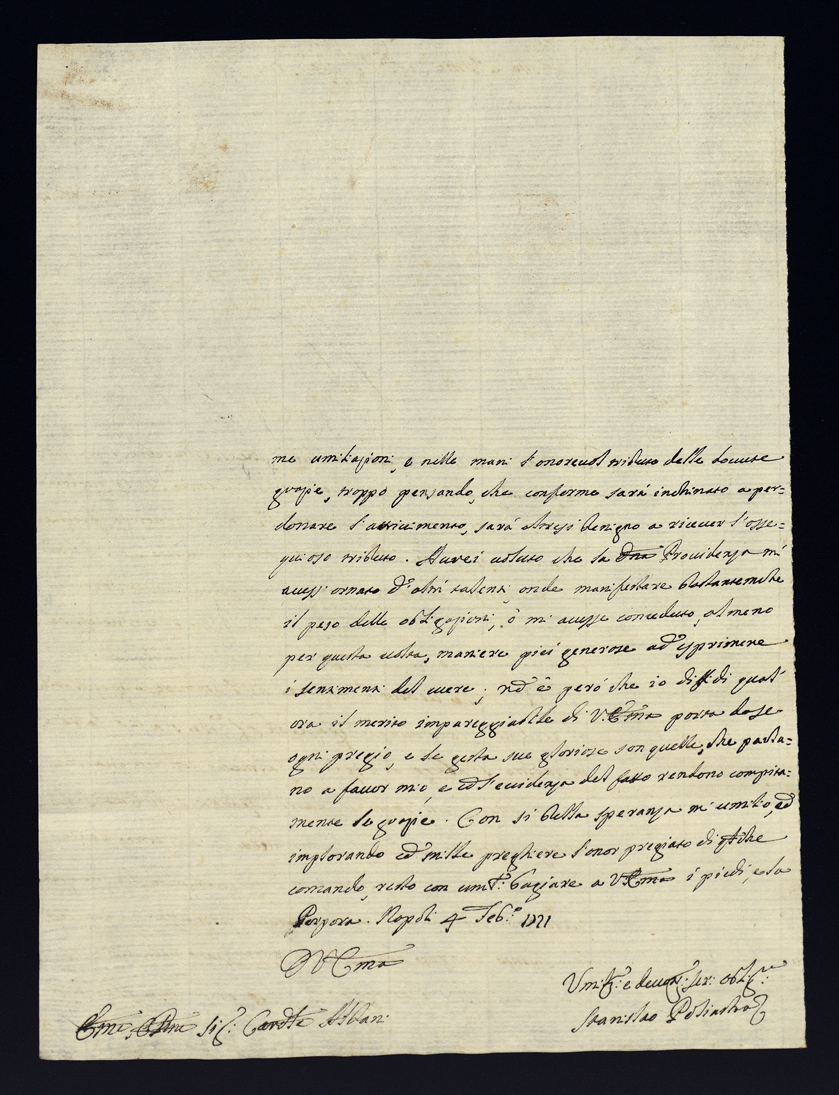 me umiliazioni, e nelle mani l'onorevol tributo delle dovute
grazie, troppo pensando, che conforme sarà inchinato a per=
donare l'ardimento, sarà altresì benigno a ricever l'osse=
quioso tributo. Aurei voluto che la Dna Providenza mi
avess' ornato d'altri talenti onde manifestare bastantemente
il peso delle obligazioni, ò mi avesse conceduto, almeno
per questa volta, maniere più generose ad' esprimere
i sentimenti del cuore; nè è però che io diffidi qual'
ora il merito impareggiabile di V. Ema porta da se
ogni pregio, e le gesta sue gloriose son quelle, che parla=
no a favor mio, e coll'evidenza del fatto rendono compita=
mente le grazie. Con sì bella speranza m'umilio, ed
implorando co' mille preghiere l'onor pregiato di qche
comando, resto con umil: bagiare a V Ema i piedi, e la
Porpora. Napoli 4 Feb.o 1721
D V Ema
Umil:o e devot: ser: obl:mo
Eme, e Rme Sig: Cardle Albani
Stanislao Poliastri